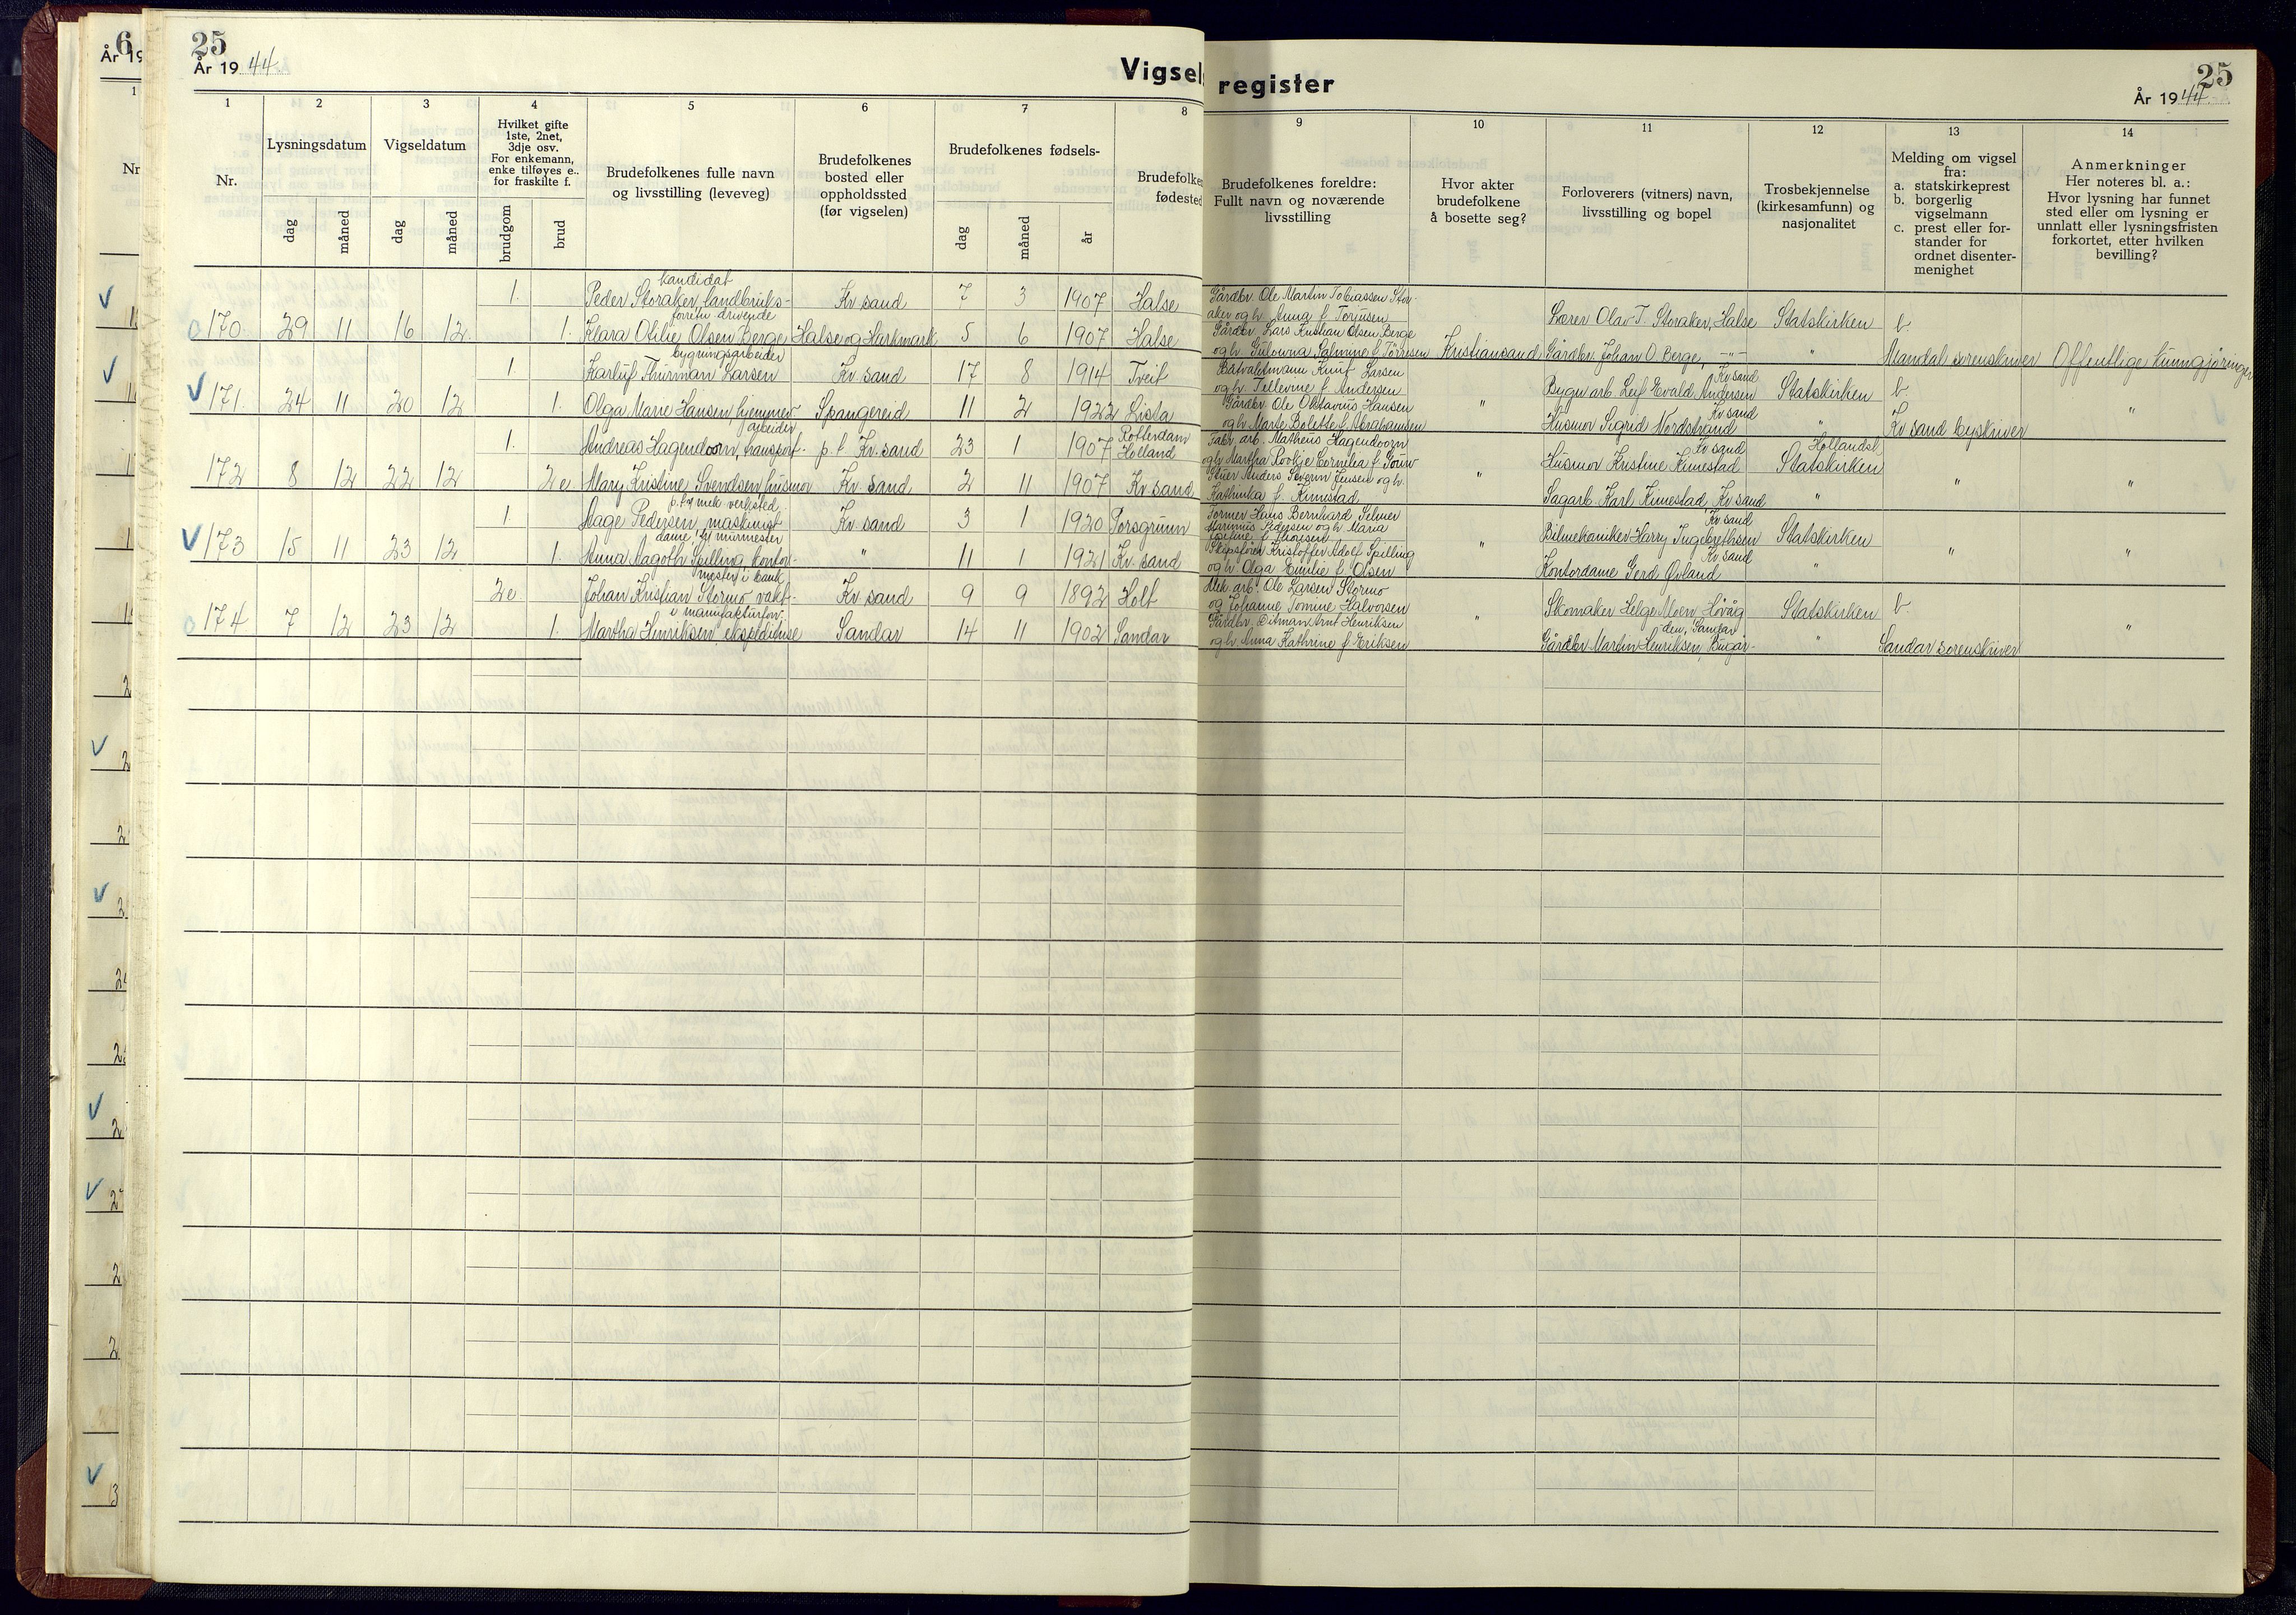 25
År 1944
Vigsel
register
25
År 1944
6
År 19
1
2
3
4
5
6
7
8
9
10
11
12
13
14
Nr.
Lysningsdatum
dag
måned
Vigseldatum
dag
måned
Hvilket gifte
1ste, 2net,
3dje osv.
For enkemann,
enke tilføyes e..
for fraskilte f.
brudgom
brud
Brudefolkenes fulle navn
og livsstilling (leveveg)
Brudefolkenes
bosted eller
oppholdssted
(før vigselen)
Brudefolkenes fødsels-
dag
måned
år
Brudefolke
fødested
Brudefolkenes foreldre:
Fullt navn og noværende
livsstilling
Hvor akter
brudefolkene
å bosette seg?
Forloverers (vitners) navn,
livsstilling og bopel
Trosbekjennelse
(kirkesamfunn) og
nasjonalitet
Melding om vigsel
fra:
a. statskirkeprest
b. borgerlig
vigselmann
c. prest eller for-
stander for
ordnet disenter-
menighet
Anmerkninger
Her noteres bl. a.:
Hvor lysning har funnet
sted eller om lysning er
unnlatt eller lysningsfristen
forkortet, etter hvilken
bevilling?
kandidat
1. Peder Storaker, landbruks- Kr. sand 7 3 1907 Halse Gårdbr. Ole Martin Tobiassen Stor-
aker og h. Anna f. Torjusen Lærer Olav T. Storaker, Halse Statskirken b.
forretn. drivende
170. 29 11 16 12 1. Klara Otilie Olsen Berge Halse og Harkmark 5 6 1907 Halse Gårdbr. Lars Kristian Olsen Berge
og h. Gulovna Salmine f. Tørresen Kristiansand Gårdbr. Johan O. Berge, -"- " Mandal sorenskriver Offentlige kunngjøringer
bygningsarbeider
1. Karluf Thurman Larsen Kr. sand 17 8 1914 Tveit Båtvaktmann Knut Larsen
og h. Tellevine f. Andersen Bygn. arb. Leif Evald Andersen Kr. sand Statskirken b.
171. 24 11 20 12 1. Olga Marie Hansen, hjemmev. Spangereid 11 2 1922 Lista Gårdbr. Ole Oktavius Hansen
og h. Marte Bolette f. Abrahamsen " Husmor Sigrid Nordstrand Kr. sand " Kr. sand byskriver "
arbeider
1. Andreas Hagendoorn, transport- p.t. Kr. sand 23 1 1907 Rotterdam
Holland Fabr. arb. Matheus Hagendoorn
og h. Martha Cornelia f. Husmor Kristine Kimestad Kr. sand Hollandsk
Statskirken
172 8 12 22 12 2 e Mary Kristine Svendsen husmor Kr. sand 2 11 1907 Kr. sand Stuer Anders Severin Jensen og h.
Kathinka f. Kimestad " Sagarb. Karl Kimestad, Kr. sand " " "
mek. verksted
1. Aage Pedersen, maskinist Kr. sand 3 1 1920 Porsgrunn Former Hans Bernhard Selmer
Marinius Pedersen og h. Maria
Josefine f. Thoresen Bilmekaniker Harry Ingebrethsen Kr. sand Statskirken
dame h/ murmester
173 15 11 23 12 1. Anna Magoth Spilling, kontor- " 11 1 1921 Kr. sand Skipsfører Kristoffer Adolf Spilling
og h. Olga Emilie f. Olsen " Kontordame Gerd Øvland Kr. sand " " "
mester i bank
2e. Johan Kristian Stormo vakt- Kr. sand 9 9 1892 Holt Mek. arb. Ole Larsen Stormo
og Johanne Tomine Halvorsen Skomaker Helge Moen, Høvåg Statskirken b.
i manufakturforr.
174 7 12 23 12 1. Martha Henriksen, ekspeditrise Sandar 14 11 1902 Sandar Gårdbr. Ditman Arnt Henriksen
og h. Anna Kathrine f. Eriksen " Gårdbr. Martin Henriksen, Bugår-
den, Sandar " Sandar sorenskriver "